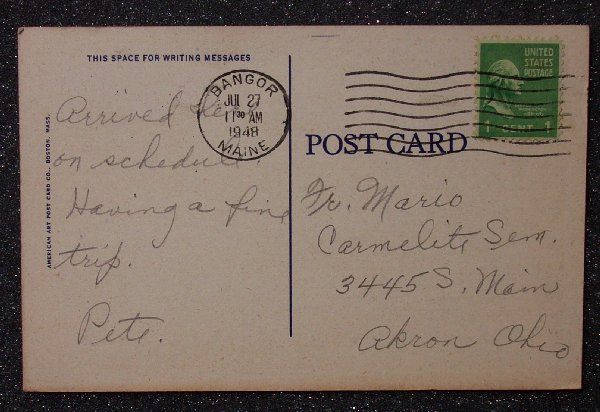 THIS SPACE FOR WRITING MESSAGES
BANGOR
JUL 27
11 30 AM
1948
MAINE
UNITED
STATES
POSTAGE
1 CENT 1
POST CARD
Arrived
on schedule.
Having a fine
trip.
Pete.
Fr. Mario
Carmelite Sem.
3445 S. Main
Akron Ohio
AMERICAN ART POST CARD CO., BOSTON, MASS.